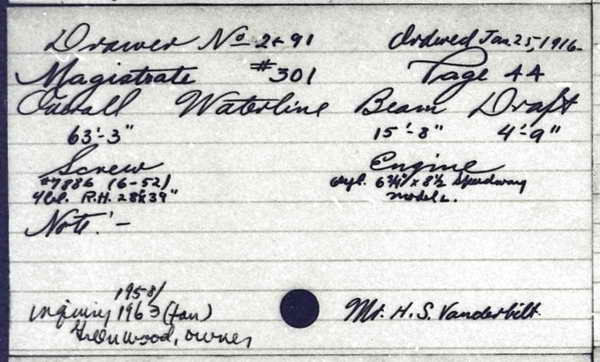 Drawer No 2+91 Ordered Jan 25, 1916
Magistrate #301 Page 44
Overall Waterline Beam Draft
63'-3" 15'-8" 4'-9"
Screw Engine
#7886 (6-52) 6cyl. 6¾" x 8½ Speedway
4 bl. R.H. 28"x39" Model L.
Note:-
1958/
inquiry 1963 (Jan)
owner
Mr. H. S. Vanderbilt